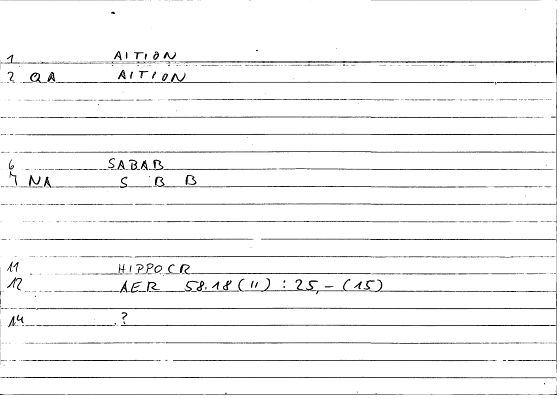 1 AITION
2 QA AITION
6 SABAB
7 NA S B B
11 HIPPOCR
12 AER 58.18 (11) : 25,- (15)
14 ?